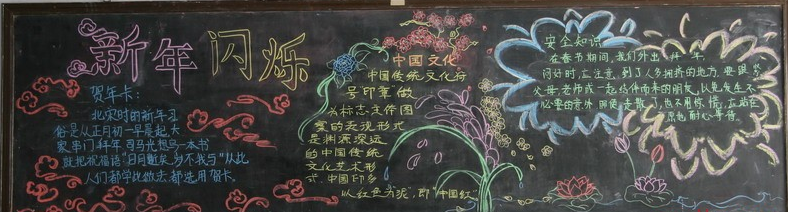 新年闪烁
贺年卡:
北宋时的新年习
俗是从正月初一早晨起,大
家串门拜年
一本书
就把祝福语"日月逝矣,岁不我与"从此
人们都学此做法,都选用贺卡。
中国文化
中国传统文化符
号印章做
为标志文件图
案的表现形式
是渊源深远
的中国传统
文化艺术形
式.中国印多
以"红色为泥",即"中国红"
安全知识
在春节期间,我们外出拜年
问好时,应注意,到了人多拥挤的地方,要跟紧
父母老师或一起结伴而来的朋友,以免发生不
必要的意外,即使走散了,也不用惊慌,应站在
原地耐心等待。